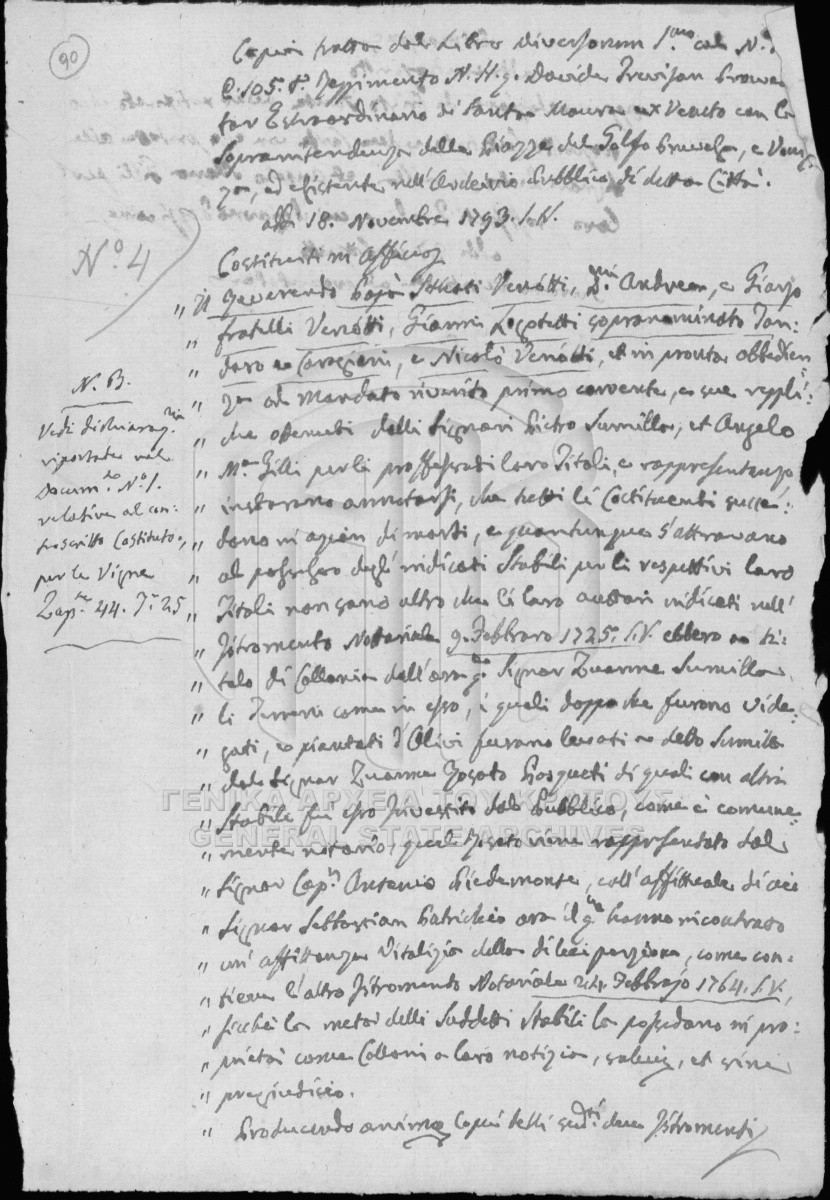 90
Copia tratta dal Libro diversorum P.mo cal N.o
C. 105. Reggimento N. H. q. Davide Trevisan Provedi
tor Estraordinario di Santa Maura ex Veneto con la
Sopraintendenza della Piazza del Golfo Preveza, e Voniz
za, ed esistente nell'Archivio Pubblico di detta Città.
addi 18. Novembre 1793. S.N.
N.o 4
Costituiti in Officio
„ Il Reverendo Papà Stathi Verrótti, Andrea, e Giorgo
„ fratelli Verrótti, Gianni Logotetti sopranominato Ian:
„ daro e Caragiani, e Nicolò Verrótti, et in pronta obbedien
„ za al Mandato riverito primo corrente, e sue repli:
„ che ottenuti dalli Signori Pietro Sumilla, et Angelo
„ M.a Gilli per li professati loro Titoli, e rappresentanze
„ instarono annotarsi, che tutti li Costituenti succe:
„ dono in azion di morti, e quantunque s'attrovano
„ al possesso degl'indicati Stabili per li respettivi loro
„ Titoli non sono altro che li loro auttori indicati nell'
„ Istromento Notariale 9. Febbraro 1725. S.V. ebbero a ti:
„ tolo di Collonia dall'ora q.m Signor Zuanne Sumilla
„ li Terreni come in esso, i quali doppo che furono vide:
„ gati, e piantati d'Olivi furono levati a detto Sumilla
„ dal Signor Zuanne Zosato Bosqueti di quali con altri
„ Stabili fu esso Investito dal Pubblico, come è comune:
„ mente notorio, qual Zosato viene rappresentato dal
„ Signor Cap.n Antonio Piedemonte, coll'affittuale di cui
„ Signor Sebbastian Patrichio ora il q.m hanno ricontrato
„ un'affittanza Vitalizia della di lui porzione, come con:
„ tiene l'altro Istromento Notariale 24. Febbrajo 1764. S.V.,
„ sicchè la metà delli Suddetti Stabili la possedono in pro:
„ prietà come Colloni a loro notizia, salvis, et sine
„ pregiudicio.
„ Producendo annimo Copie delli sud.ti due Istromenti
N. B.
Vedi dichiaraz.ne
riportata nel
Docum.to N.o 1.
relativa al con:
troscritto Costituto,
per la Vigna
Zap.e 44. T. 25
ΓΕΝΙΚΑ ΑΡΧΕΙΑ ΤΟΥ ΚΡΑΤΟΥΣ
GENERAL STATE ARCHIVES